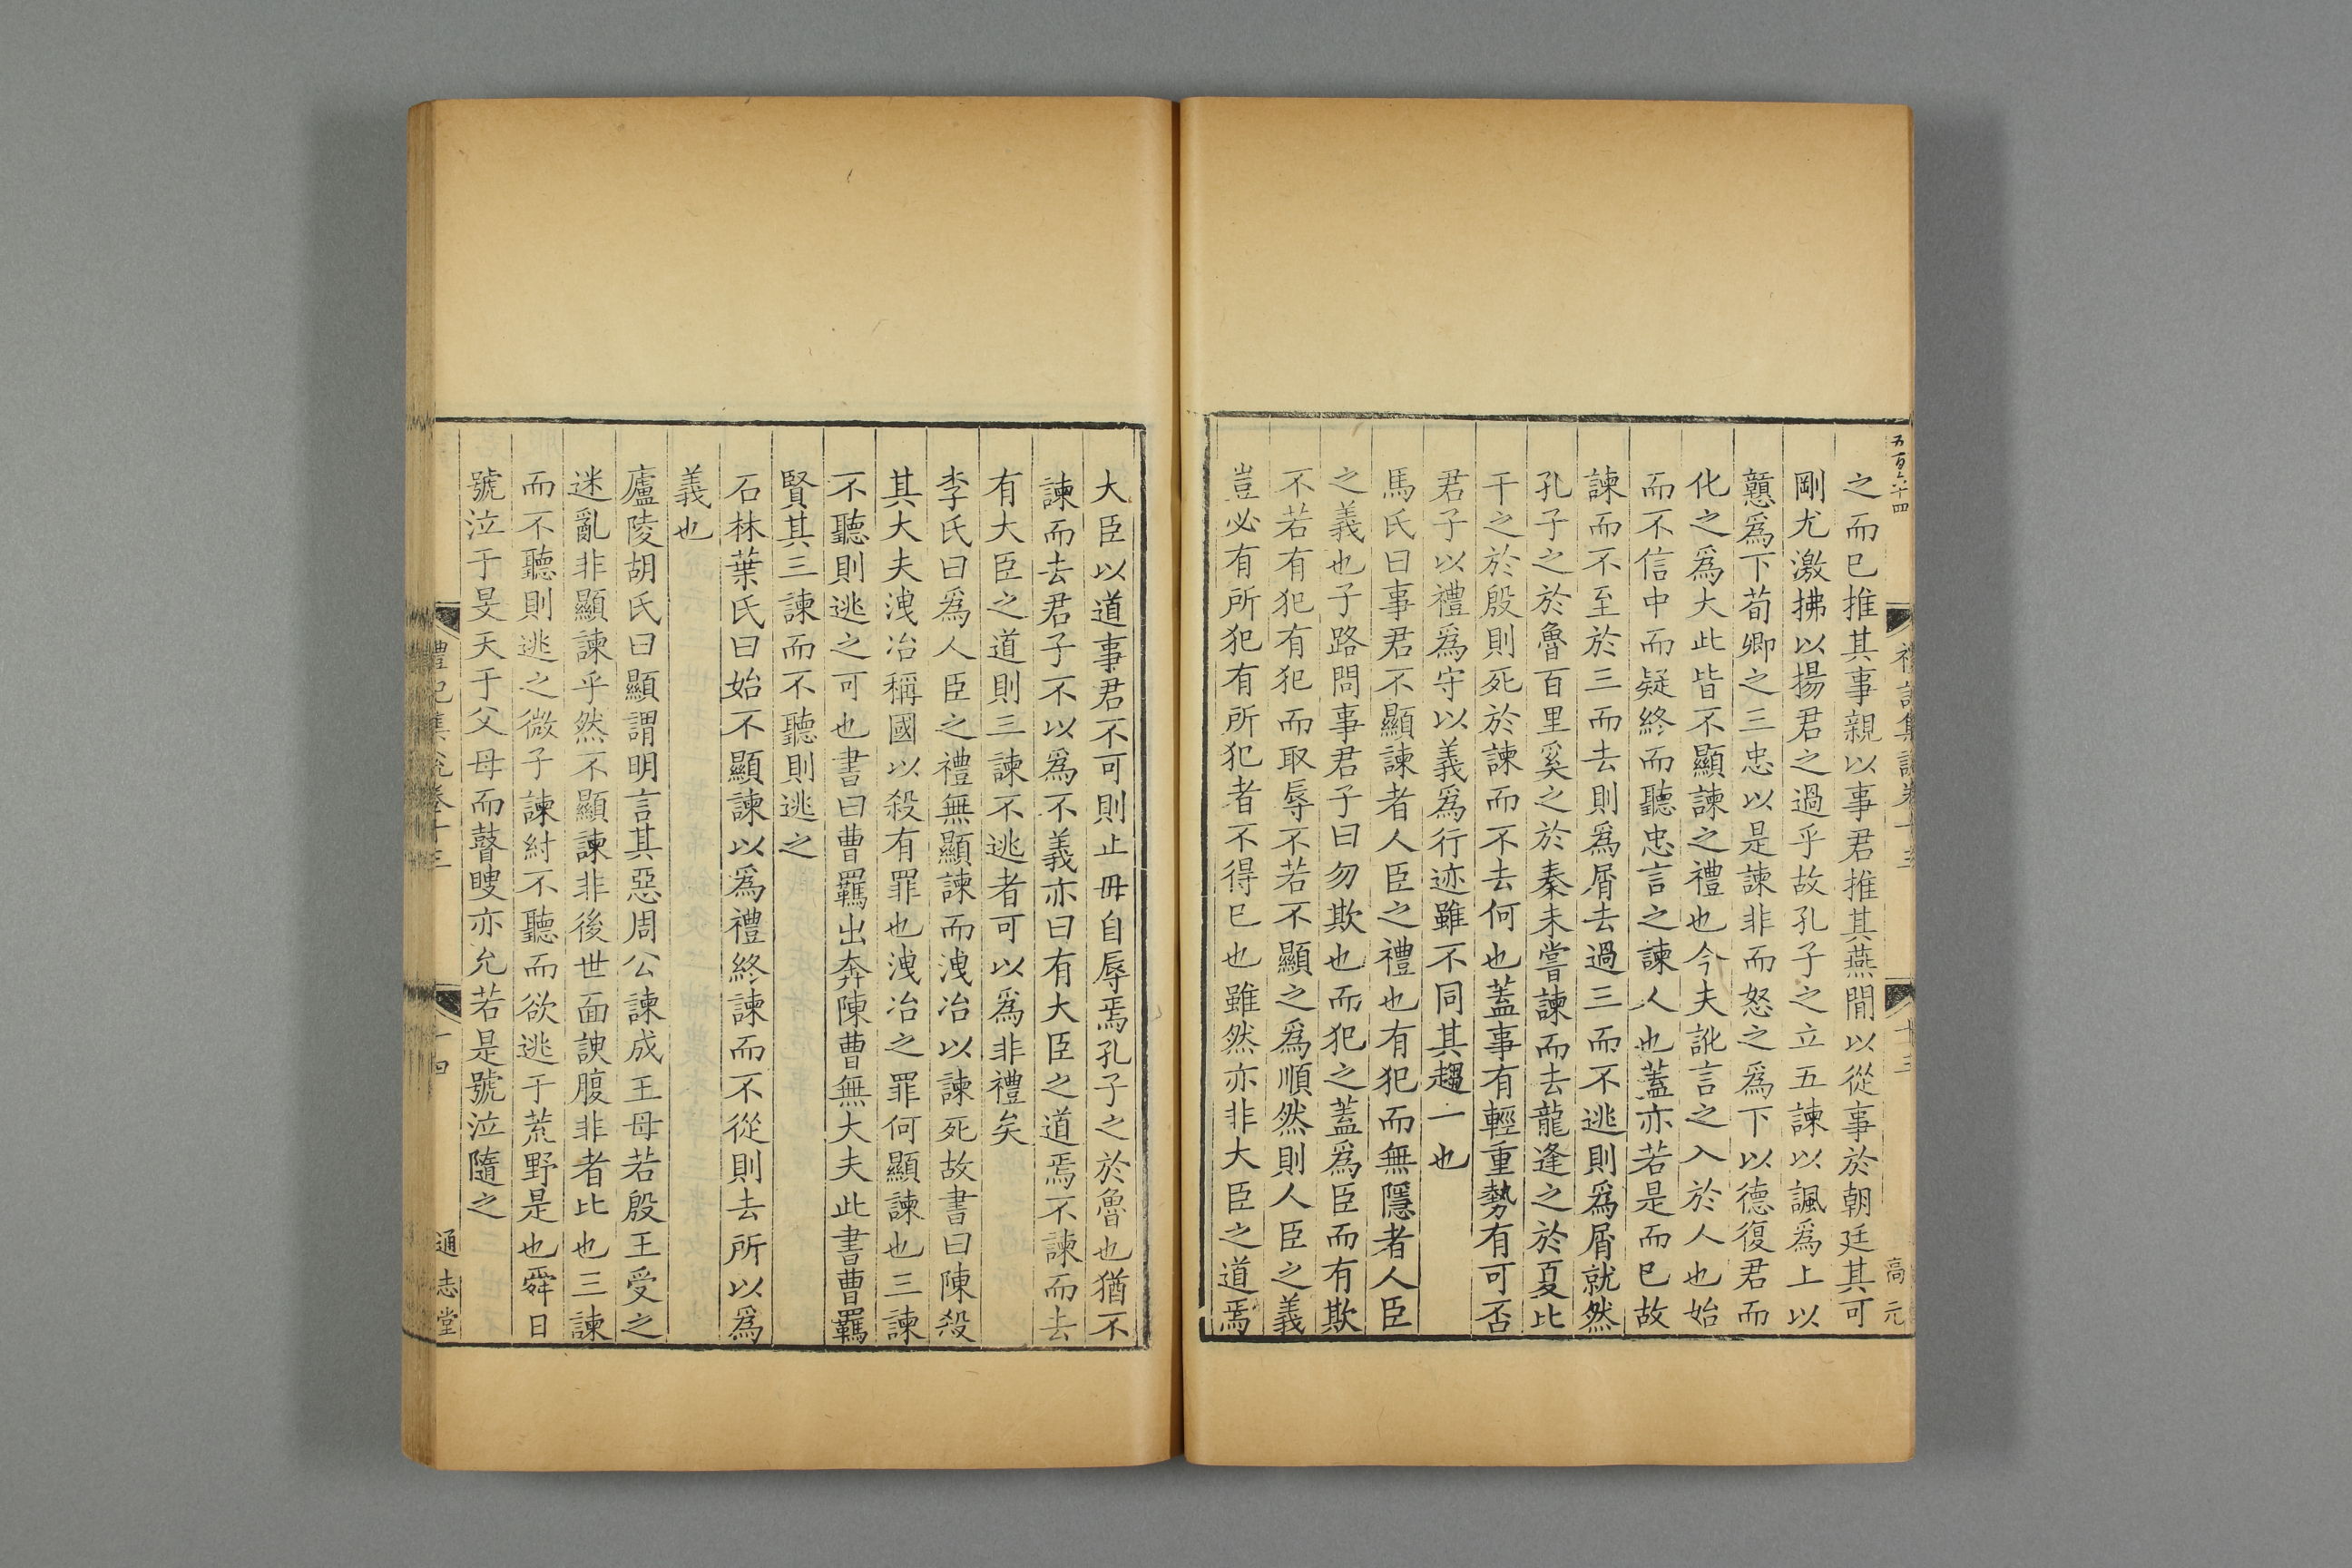 五百六十四
禮記集說卷十三
十三
高元
之而已推其事親以事君推其燕閒以從事於朝廷其可
剛尤激拂以揚君之過乎故孔子之立五諫以諷爲上以
戇爲下荀卿之三忠以是諫非而怒之爲下以德復君而
化之爲大此皆不顯諫之禮也今夫訛言之入於人也始
而不信中而疑終而聽忠言之諫人也蓋亦若是而已故
諫而不至於三而去則爲屑去過三而不逃則爲屑就然
孔子之於魯百里奚之於秦未嘗諫而去龍逢之於夏比
干之於殷則死於諫而不去何也蓋事有輕重勢有可否
君子以禮爲守以義爲行迹雖不同其趨一也
馬氏曰事君不顯諫者人臣之禮也有犯而無隱者人臣
之義也子路問事君子曰勿欺也而犯之蓋爲臣而有欺
不若有犯有犯而取辱不若不顯之爲順然則人臣之義
豈必有所犯有所犯者不得已也雖然亦非大臣之道焉
大臣以道事君不可則止毋自辱焉孔子之於魯也猶不
諫而去君子不以爲不義亦曰有大臣之道焉不諫而去
有大臣之道則三諫不逃者可以爲非禮矣
李氏曰爲人臣之禮無顯諫而洩冶以諫死故書曰陳殺
其大夫洩冶稱國以殺有罪也洩冶之罪何顯諫也三諫
不聽則逃之可也書曰曹羈出奔陳曹無大夫此書曹羈
賢其三諫而不聽則逃之
石林葉氏曰始不顯諫以爲禮終諫而不從則去所以爲
義也
廬陵胡氏曰顯謂明言其惡周公諫成王毋若殷王受之
迷亂非顯諫乎然不顯諫非後世面諛腹非者比也三諫
而不聽則逃之微子諫紂不聽而欲逃于荒野是也舜日
號泣于旻天于父母而瞽瞍亦允若是號泣隨之
禮記集說卷十三
十四
通志堂